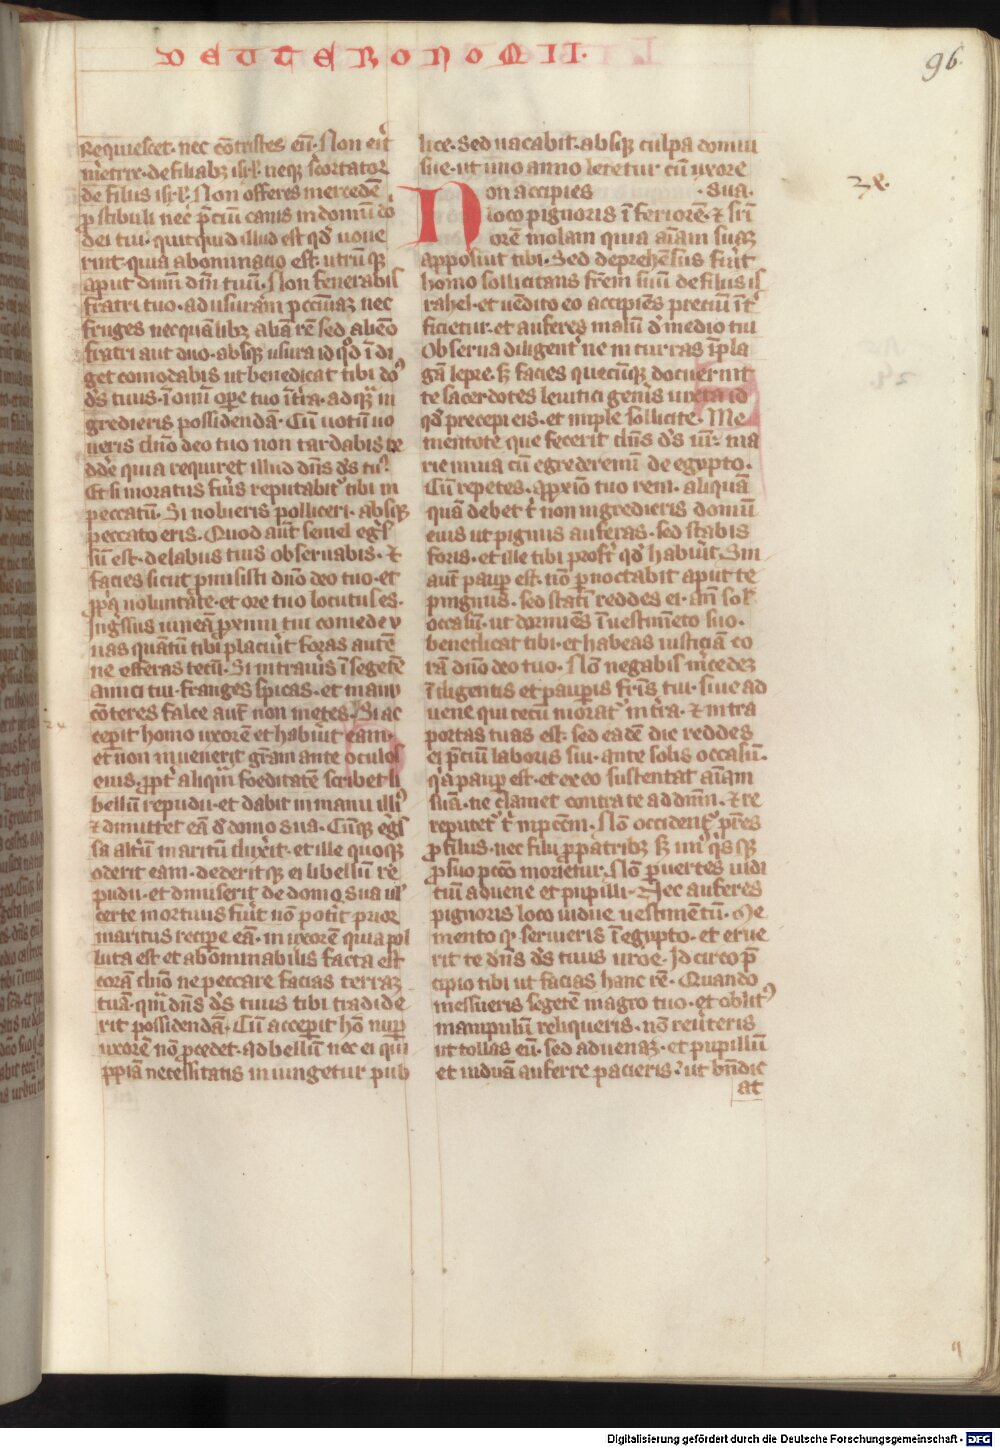 DEUTERONOMII.
96
Requiescet. nec cōtristes eū. Non erit
meretrix. de filiabꝫ isrl. neqꝫ scortator
de filiis isrl. Non offeres mercedē
ꝓstibuli nec p̄cium canis in domū dn̄i
dei tui. quitquid illud est qd̓ voue
rint. quia abominacio est. utrūqꝫ
aput dn̄m dm̄ tuū. Non fenerabis
fratri tuo. ad usuram peccuniaꝫ nec
fruges nec quālibꝫ aliā rē sed alieno
fratri aut tuo. absqꝫ usura id qd̓ īdi
get comodabis ut benedicat tibi do
ds̄ tuus. ī omī oꝑe tuo ī t̄ra. ad quā in
gredieris possidendā. Cū votū vo
veris dn̄o deo tuo non tardabis re
dde̓ quia requiret illud dn̄s ds̄ tuꝰ.
Et si moratus fuīs reputabitᷣ tibi in
peccatū. Si nolueris polliceri. absqꝫ
peccato eris. Quod aūt semel egres
sū est. de labiis tuis observabis. et
facies sicut pmisisti dn̄o deo tuo. et
ꝓpa voluntate. et ore tuo locutus es.
Ingressus vineā proximi tui comede v
uas quātū tibi placuīt foras autē
ne efferas tecū. Si intravīs ī segetē
amici tui. franges spicas. et manu
cōteres falce aut̄ non metes. Si ac
ceperit homo uxorē et habuīt eam.
et non invenerit gr̄am ante oculos
eius. ꝓpt̄ aliquā foeditatē scribet li
bellū repudii. et dabit in manu illiꝰ
et dimittet eā de domo sua. Cūqꝫ egres
sa altū maritū duxit. et ille quoqꝫ
oderit eam. dederitqꝫ ei libellū re
pudii. et dimiserit de domo sua ul̓
certe mortuus fuīt nō potīt prior
maritus recipe eā. in uxorē quia pol
luta est et abominabilis facta est
corā dn̄o ne peccare facias terraꝫ
tuā. quā dn̄s ds̄ tuus tibi tradide
rit possidendā. Cū acceperit hō nuꝑ
uxorē nō ꝓcedet. ad bellū nec ei quī
ppiā necessitatis iniungetur pub
lice. Sed vacabit. absqꝫ culpa domui
sue. ut uno anno letetur cū uxore
Non accipies . sua.
loco pignoris īferiorē. et sui
orē molam quia aīam suaꝫ
apposuit tibi. Sed deprehēsus fuīt
homo sollicitans frēm suū de filiis is
rahel. et vēdito eo accipiēs precium īt
ficietur. et auferes malū de medio tui
Observa diligentᷣ ne incurras ī pla
gā lepre. sꝫ facies quecūqꝫ docuerint
te sacerdotes levitici genīs iuxta id
qd̓ precepi eis. et imple sollicite. Me
mentote que fecerit dn̄s ds̄ vr̄. ma
rie in via cū egrederemī de egypto.
Cū repetes. a ꝓximo tuo rem. aliquā
quā debet tī non ingredieris domū
eius ut pignus auferas. sed stabis
foris. et ille tibi ꝓfēt qd̓ habuīt. Sin
aut̄ pauꝑ est. nō pnoctabit aput te
pingnus. sed statī reddes ei. an̄ sol̓
occasū. ut dormiēs ī vestimēto suo.
benedicat tibi. et habeas iusticiā co
rā dn̄o deo tuo. Nō negabis mcedeꝫ
īdigentis et pauꝑis frīs tui. sive ad
vene qui tecū moratᷣ in t̄ra. et intra
portas tuas est. sed eadē die reddes
ei p̄ciū laboris sui. ante solis occasū.
qa pauꝑ est. et ex eo sustentat aīam
suā. ne clamet contra te ad dn̄m. et re
reputetᷣ tī in pcc̄m. Nō occidentᷣ pr̄es
ꝓ filiis. nec filii ꝓ patribꝫ sꝫ unꝰ qsqꝫ
ꝓ suo pctō morietur. Nō pvertes iudi
ciū advene et pupilli. Nec auferes
pignoris loco vidue vestimētū. Me
mento qd̓ servieris ī egypto. et erue
rit te dn̄s ds̄ tuus inde. Idcirco p̄
cipio tibi ut facias hanc rē. Quando
messueris segetē in agro tuo. et oblitꝰ
manipulū reliqueris. nō revteris
ut tollas eū. sed advenaꝫ. et pupillū
et viduā auferre pacieris. ut bn̄dic
at
Digitalisierung gefördert durch die Deutsche Forschungsgemeinschaft - DFG